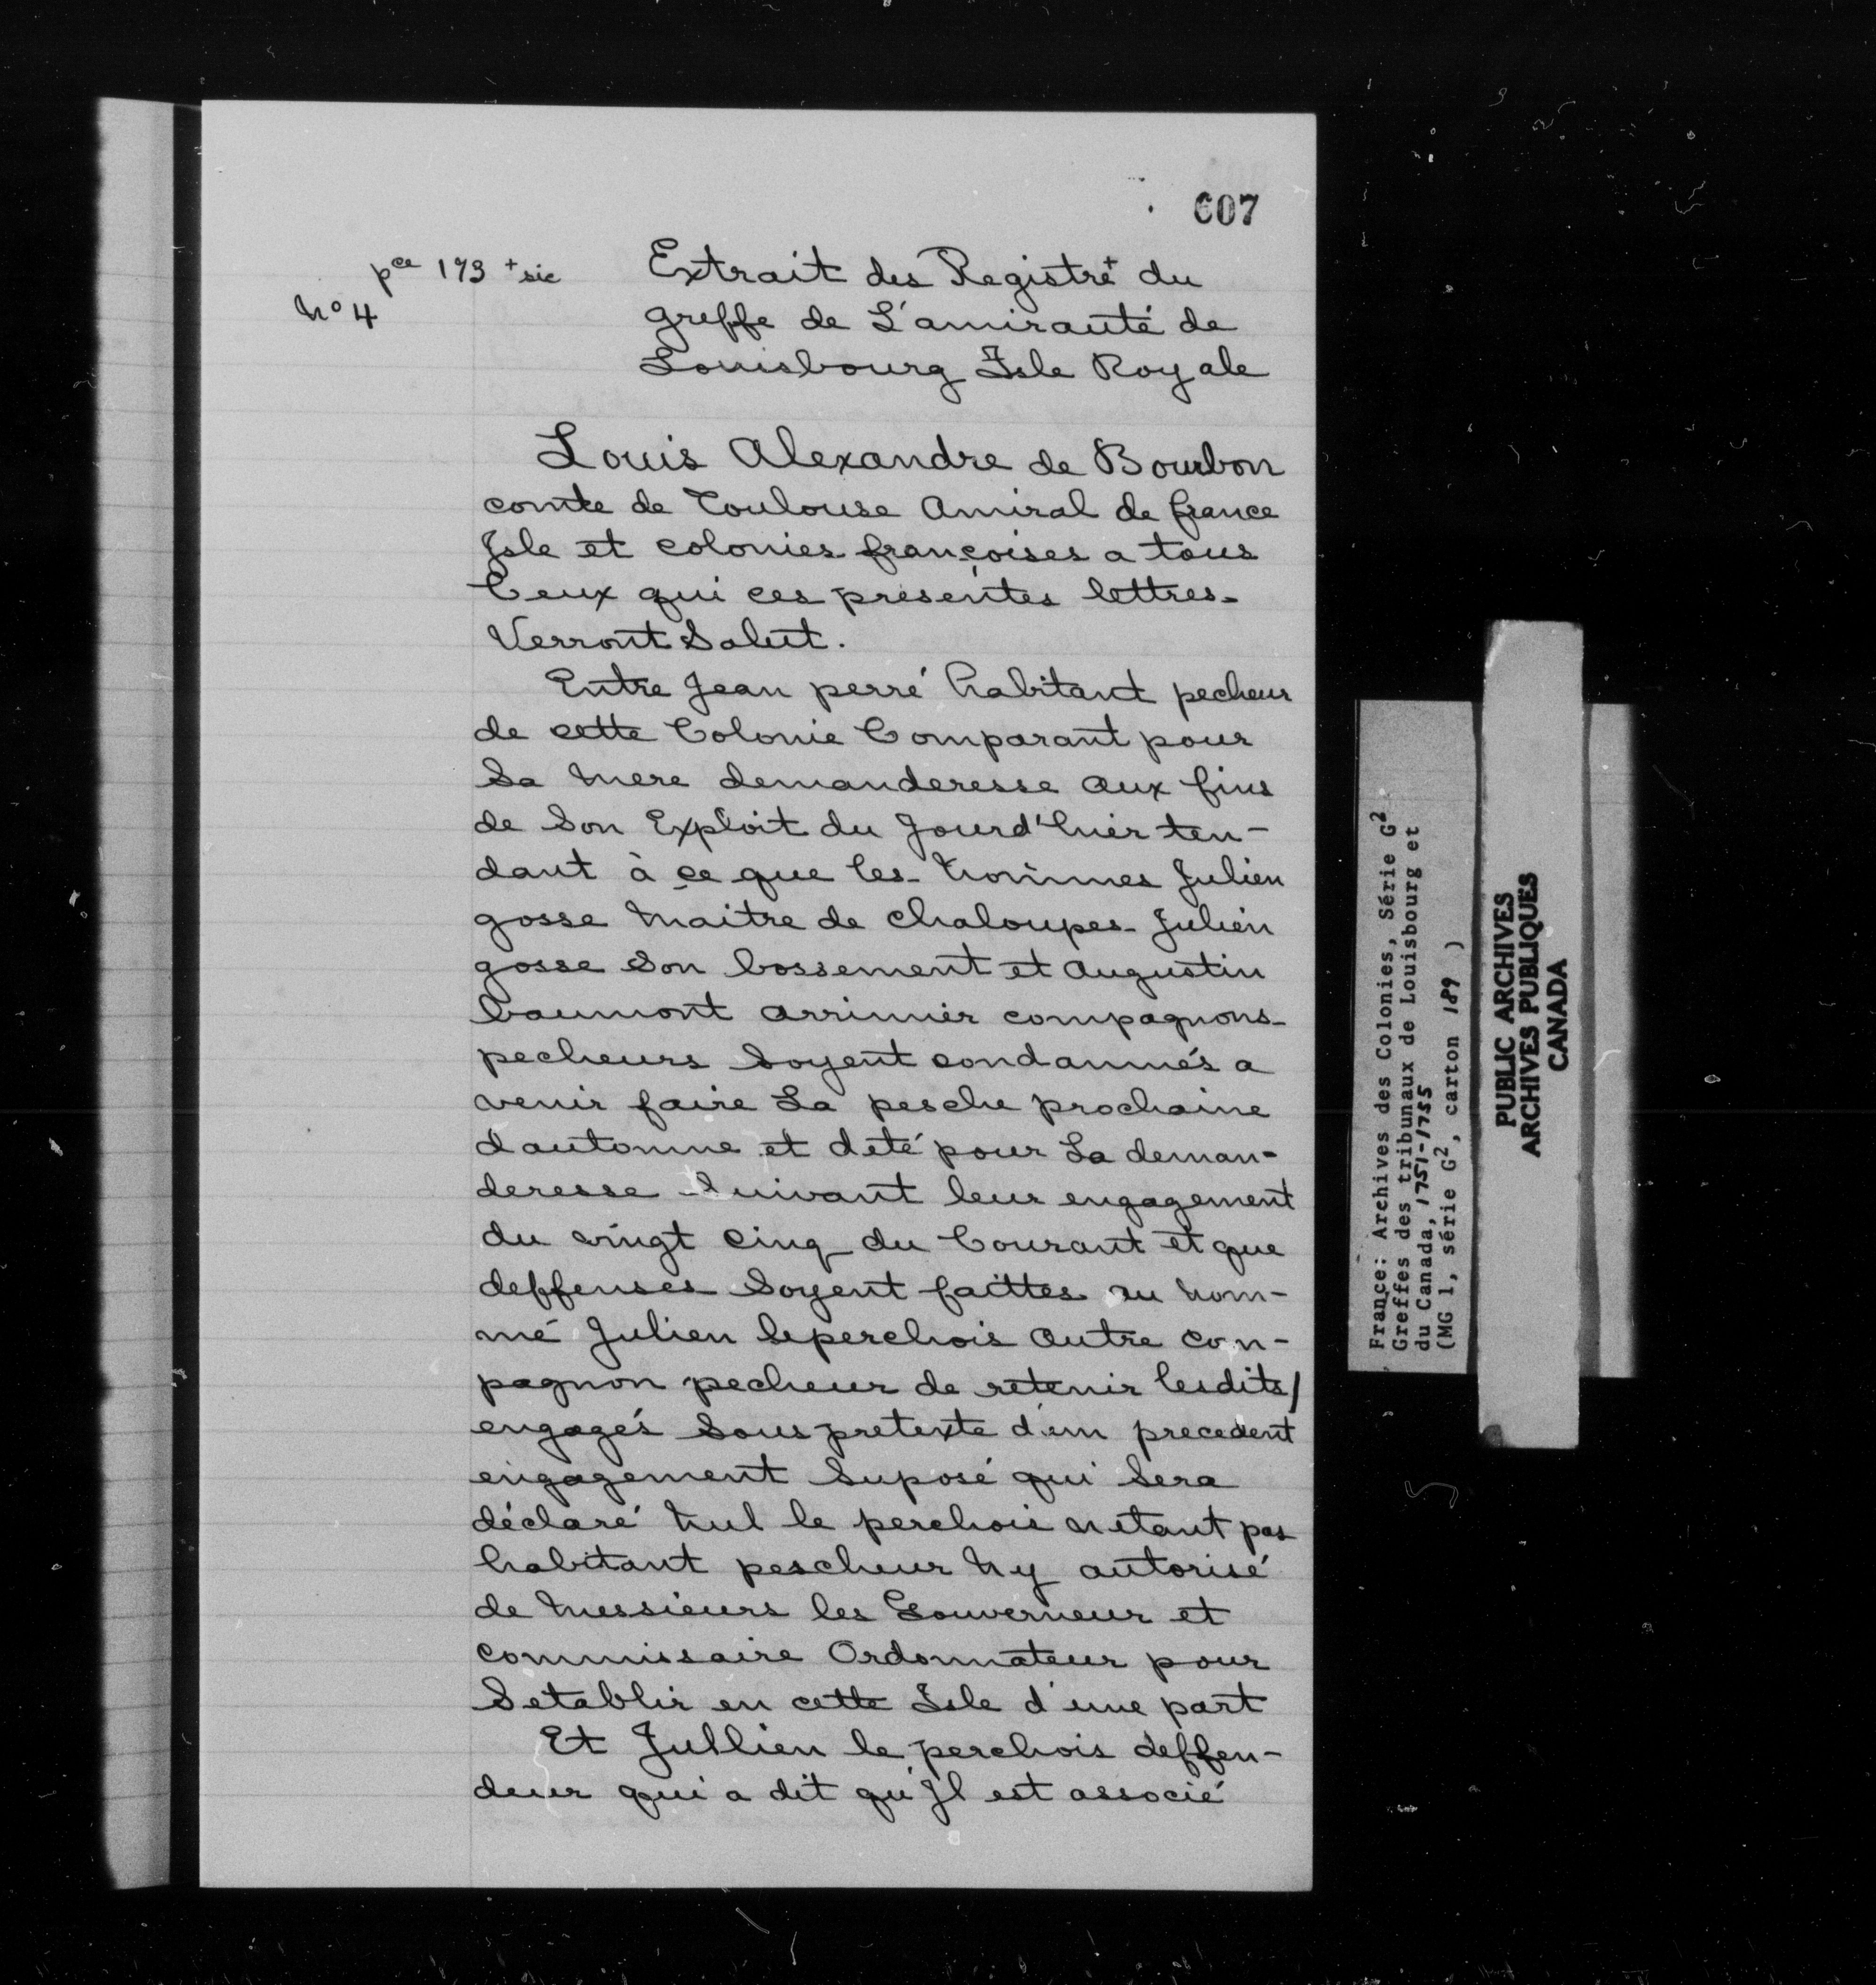 607
pce 193 + sic
No 4
Extrait des Registre+ du
greffe de L'amirauté de
Louisbourg Isle Royale
Louis Alexandre de Bourbon
comte de Toulouse Amiral de france
Isle et colonies françoises a tous
Ceux qui ces présentes lettres
Verront Salut.
Entre Jean perré habitant pecheur
de cette Colonie Comparant pour
Sa Mere demanderesse aux fins
de Son Exploit du Jourd'hier ten-
dant à ce que les Nommes Julien
gosse Maitre de chaloupes Julien
gosse Son bossement et Augustin
baumont arrimier compagnons
pecheurs Soyent condamnés a
venir faire La pesche prochaine
dautomne et deté pour La deman-
deresse Suivant leur engagement
du vingt Cinq du Courant et que
deffenses Soyent faittes au nom-
mé Julien leperchois autre com-
pagnon pecheur de retenir lesdits
engagés Sous pretexte d'un precedent
engagement Suposé qui Sera
déclaré Nul le perchois netant pas
habitant pescheur Ny autorisé
de Messieurs les Gouverneur et
commissaire Ordonnateur pour
Setablir en cette Isle d'une part
Et Jullien le perchois deffen-
deur qui a dit qu'Il est associé
France: Archives des Colonies, Série G2
Greffes des tribunaux de Louisbourg et
du Canada, 1751-1755
(MG 1, série G2, carton 189 )
PUBLIC ARCHIVES
ARCHIVES PUBLIQUES
CANADA